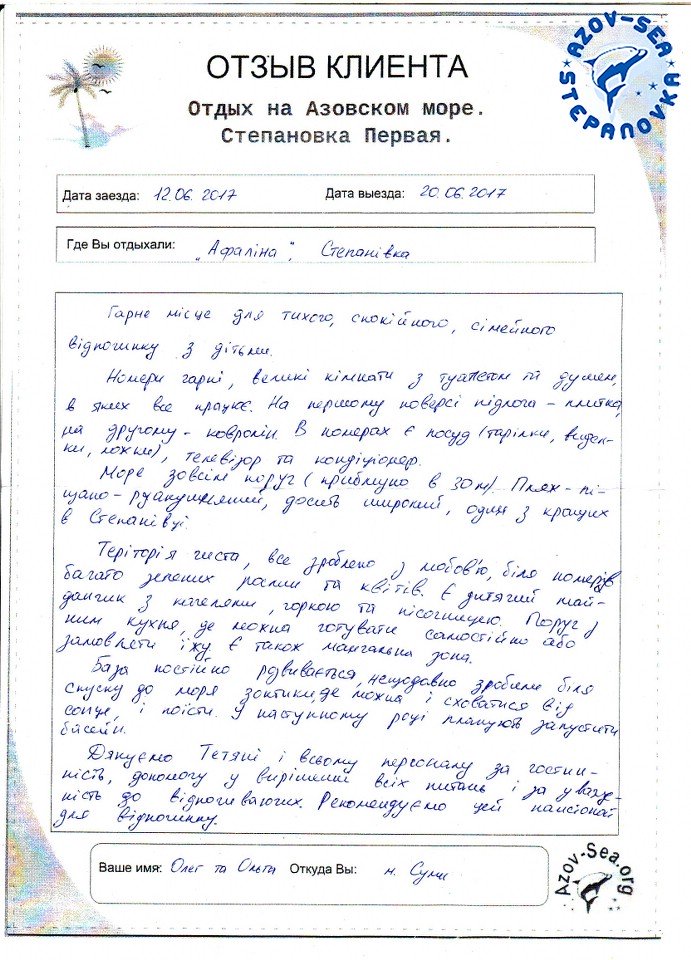 AZOV-SEA
STEPANOVKA
ОТЗЫВ КЛИЕНТА
Отдых на Азовском море.
Степановка Первая.
Дата заезда: 12.06.2017 Дата выезда: 20.06.2017
Где Вы отдыхали: „Афаліна”, Степанівка
Гарне місце для тихого, спокійного, сімейного
відпочинку з дітьми.
Номери гарні, великі кімнати з туалетом та душем,
в яких все працює. На першому поверсі підлога - плитка,
на другому - ковролін. В номерах є посуд (тарілки, виделки-
ки, ложки), телевізор та кондіціонер.
Море зовсім поруч (приблизно в 30 м). Пляж - пі-
щано-ракушняний, досить широкий, один з кращих
в Степанівці.
Теріторія чиста, все зроблено з любов'ю, біля номерів
багато зелених рослин та квітів. Є дитячий май-
данчик з качелями, горкою та пісочницею. Поруч з
ним кухня, де можна готувати самостійно або
замовляти їжу. Є також мангальна зона.
База постійно розвивається, нещодавно зробили біля
спуску до моря зонтики, де можна і сховатися від
сонця, і поїсти. У наступному році планують запустити
басейн.
Дякуємо Тетяні і всьому персоналу за гостин-
ність, допомогу у вирішенні всіх питань і за уваж-
ність до відпочиваючих. Рекомендуємо цей пансіонат
для відпочинку.
Ваше имя: Олег та Ольга Откуда Вы: м. Суми
Azov-Sea.org